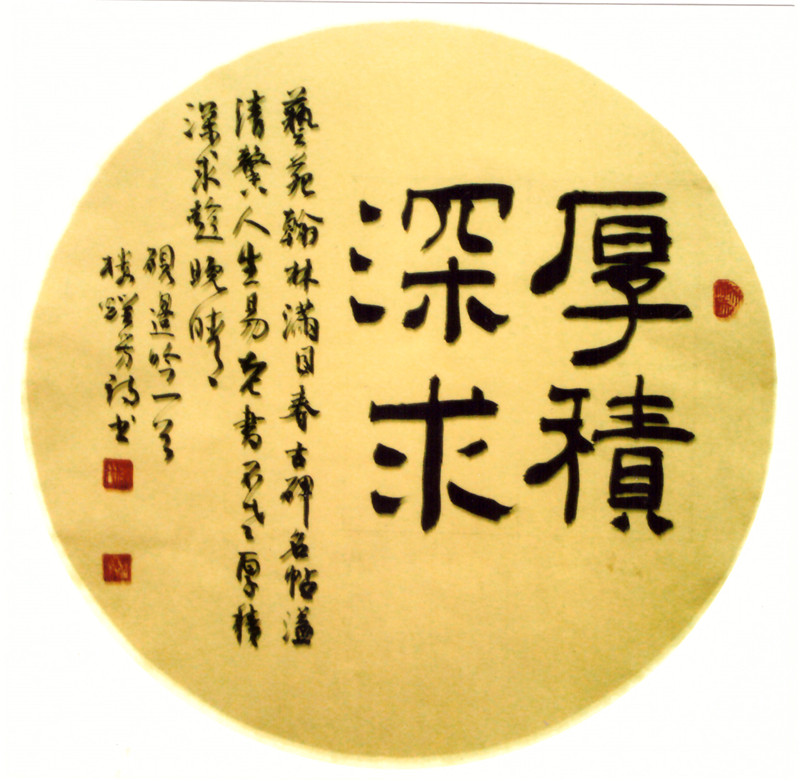 厚積
深求
藝苑翰林滿目春古碑名帖溢
清馨人生易老書不老厚積
深求趁晚晴
硯邊吟一首
樓芳詩书